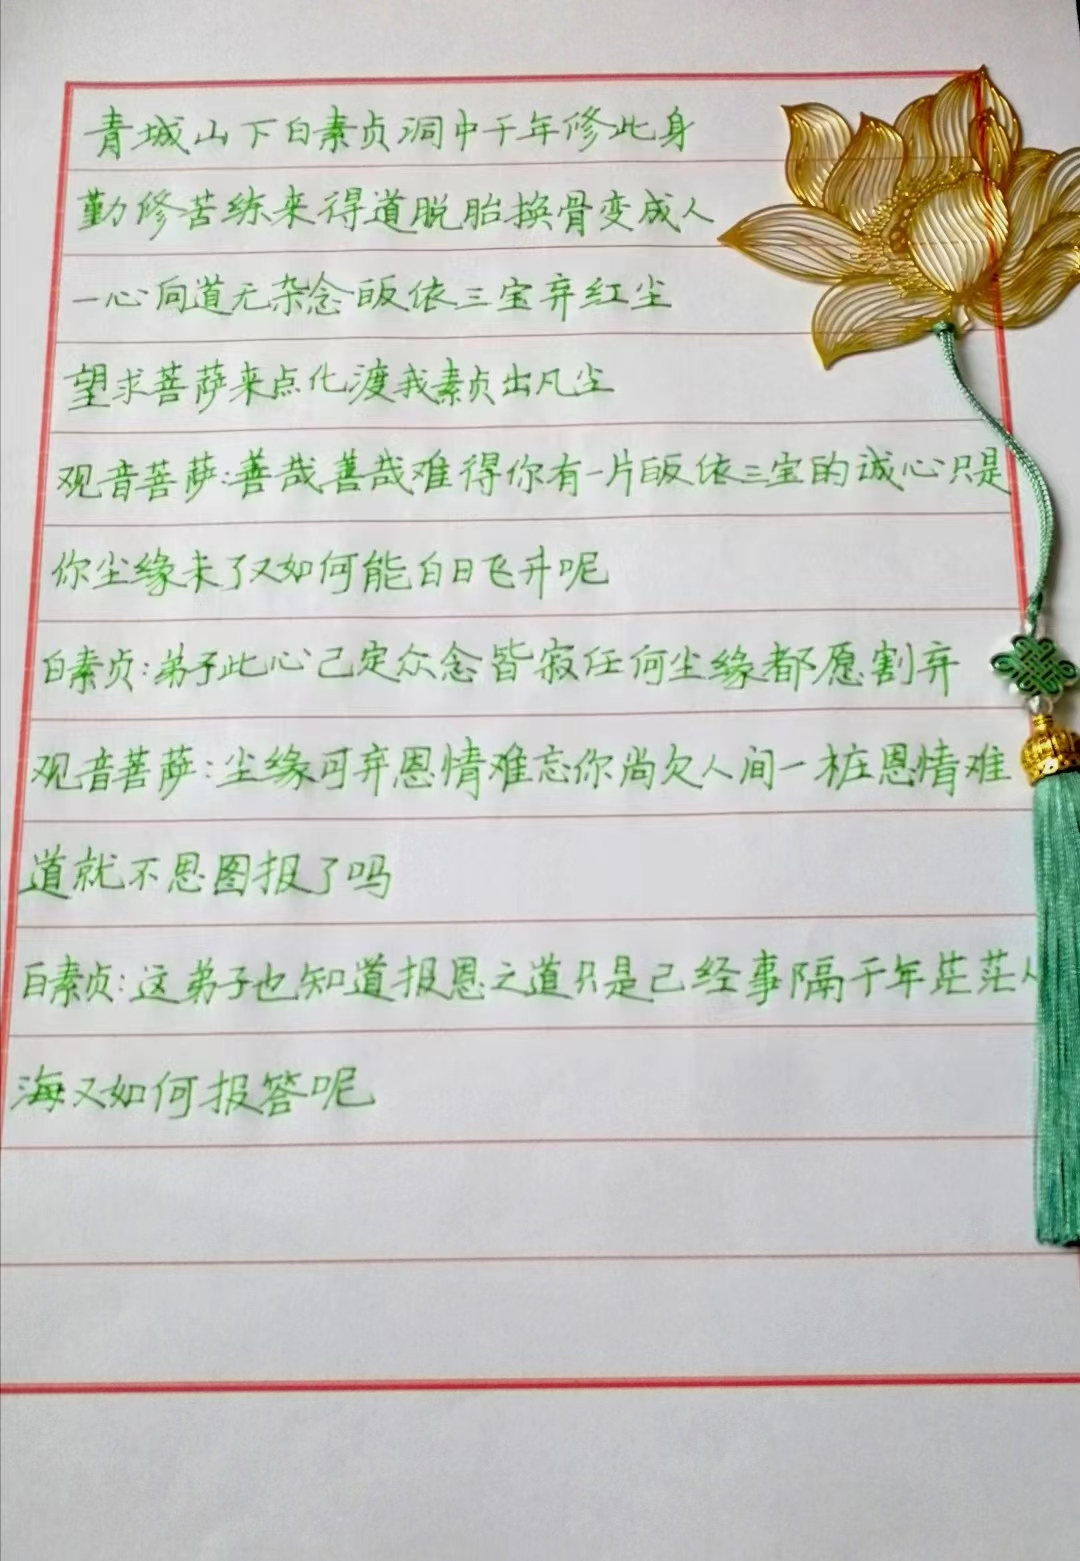 青城山下白素贞洞中千年修此身
勤修苦练来得道脱胎换骨变成人
一心向道无杂念皈依三宝弃红尘
望求菩萨来点化渡我素贞出凡尘
观音菩萨:善哉善哉难得你有一片皈依三宝的诚心只是
你尘缘未了又如何能白日飞升呢
白素贞:弟子此心己定众念皆寂任何尘缘都愿割弃
观音菩萨:尘缘可弃恩情难忘你尚欠人间一桩恩情难
道就不思图报了吗
白素贞:这弟子也知道报恩之道只是己经事隔千年茫茫人
海又如何报答呢